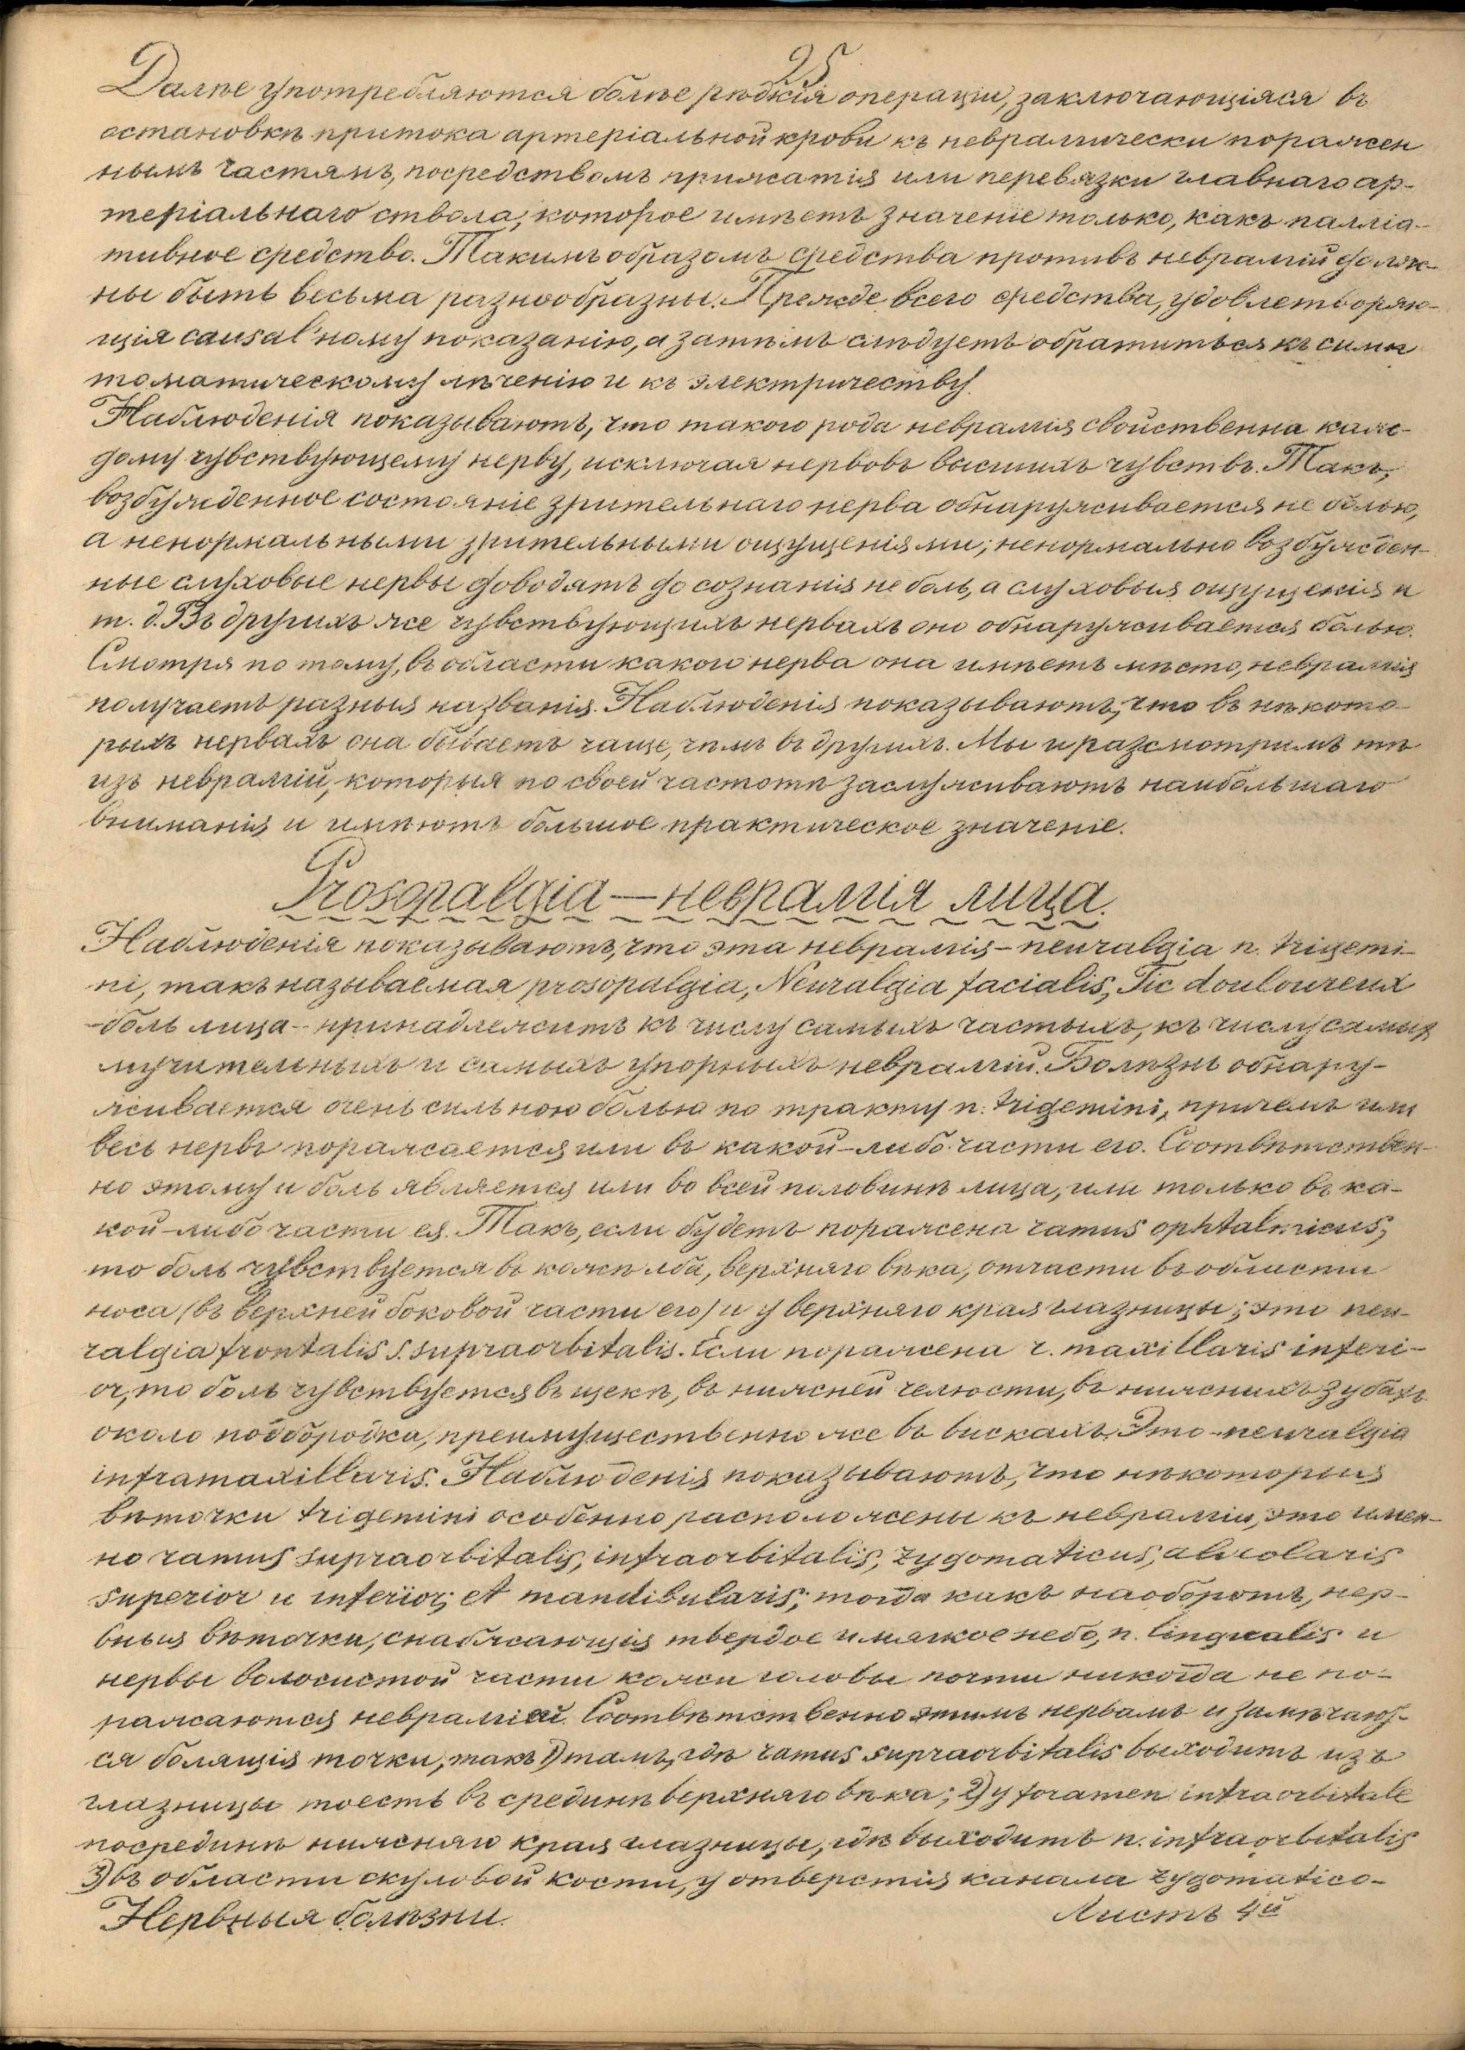 25
Далѣе употребляются болѣе рѣдкія операціи, заключающіяся въ
остановкѣ притока артеріальной крови къ невралгически поражен
нымъ частямъ, посредствомъ прижатія или перевязки главнаго ар-
теріальнаго ствола, которое имѣетъ значеніе только, какъ палліа-
тивное средство. Такимъ образомъ средства противъ невралгій долж-
ны быть весьма разнообразны. Прежде всего средства, удовлетворяю-
щія causal'ному показанію, а затѣмъ слѣдуетъ обратиться къ симп
томатическому лѣченію и къ электричеству.
Наблюденія показываютъ, что такого рода невралгія свойственна каж-
дому чувствующему нерву, исключая нервовъ высшихъ чувствъ. Такъ,
возбужденное состояніе зрительнаго нерва обнаруживается не болью,
а ненормальными зрительными ощущеніями; ненормально возбужден-
ные слуховые нервы доводятъ до сознанія не боль, а слуховыя ощущенія и
т. д. Въ другихъ же чувствующихъ нервахъ оно обнаруживается болью.
Смотря по тому, въ области какого нерва она имѣетъ мѣсто, невралгія
получаетъ разныя названія. Наблюденія показываютъ, что въ нѣкото-
рыхъ нервахъ она бываетъ чаще, чѣмъ въ другихъ. Мы и разсмотримъ тѣ
изъ невралгій, которыя по своей частотѣ заслуживаютъ наибольшаго
вниманія и имѣютъ большое практическое значеніе.
Prosopalgia — невралгія лица.
Наблюденія показываютъ, что эта невралгія - neuralgia n. trigemi-
ni, такъ называемая prosopalgia, Neuralgia facialis, Tic douloureux
- боль лица - принадлежитъ къ числу самыхъ частыхъ, къ числу самыхъ
мучительныхъ и самыхъ упорныхъ невралгій. Болѣзнь обнару-
живается очень сильною болью по тракту n. trigemini, причемъ или
весь нервъ поражается или въ какой-либо части его. Соотвѣтствен-
но этому и боль является или во всей половинѣ лица, или только въ ка-
кой-либо части ея. Такъ, если будетъ пораженa ramus ophtalmicus,
то боль чувствуется въ кожѣ лба, верхняго вѣка, отчасти въ области
носа (въ верхней боковой части его) и у верхняго края глазницы; это neu-
ralgia frontalis s. supraorbitalis. Если поражена r. maxillaris inferi-
or, то боль чувствуется въ щекѣ, въ нижней челюсти, въ нижнихъ зубахъ
около подбородка, преимущественно же въ вискахъ. Это - neuralgia
inframaxillaris. Наблюденія показываютъ, что нѣкоторыя
вѣточки trigemini особенно расположены къ невралгіи, это имен-
но ramus supraorbitalis, infraorbitalis, zygomaticus, alveolaris
superior и inferior, et mandibularis; тогда какъ наоборотъ, нер-
вныя вѣточки, снабжающія твердое и мягкое небо, n. lingualis и
нервы волосистой части кожи головы почти никогда не по-
ражаются невралгіей. Соотвѣтственно этимъ нервамъ и замѣчают-
ся болящія точки, такъ 1) тамъ, гдѣ ramus supraorbitalis выходитъ изъ
глазницы тоесть въ срединѣ верхняго вѣка; 2) у foramen infraorbitale
посрединѣ нижняго края глазницы, гдѣ выходитъ n. infraorbitalis
3) въ области скуловой кости, у отверстія канала zygomatico-
Нервныя болѣзни.
Листъ 4й